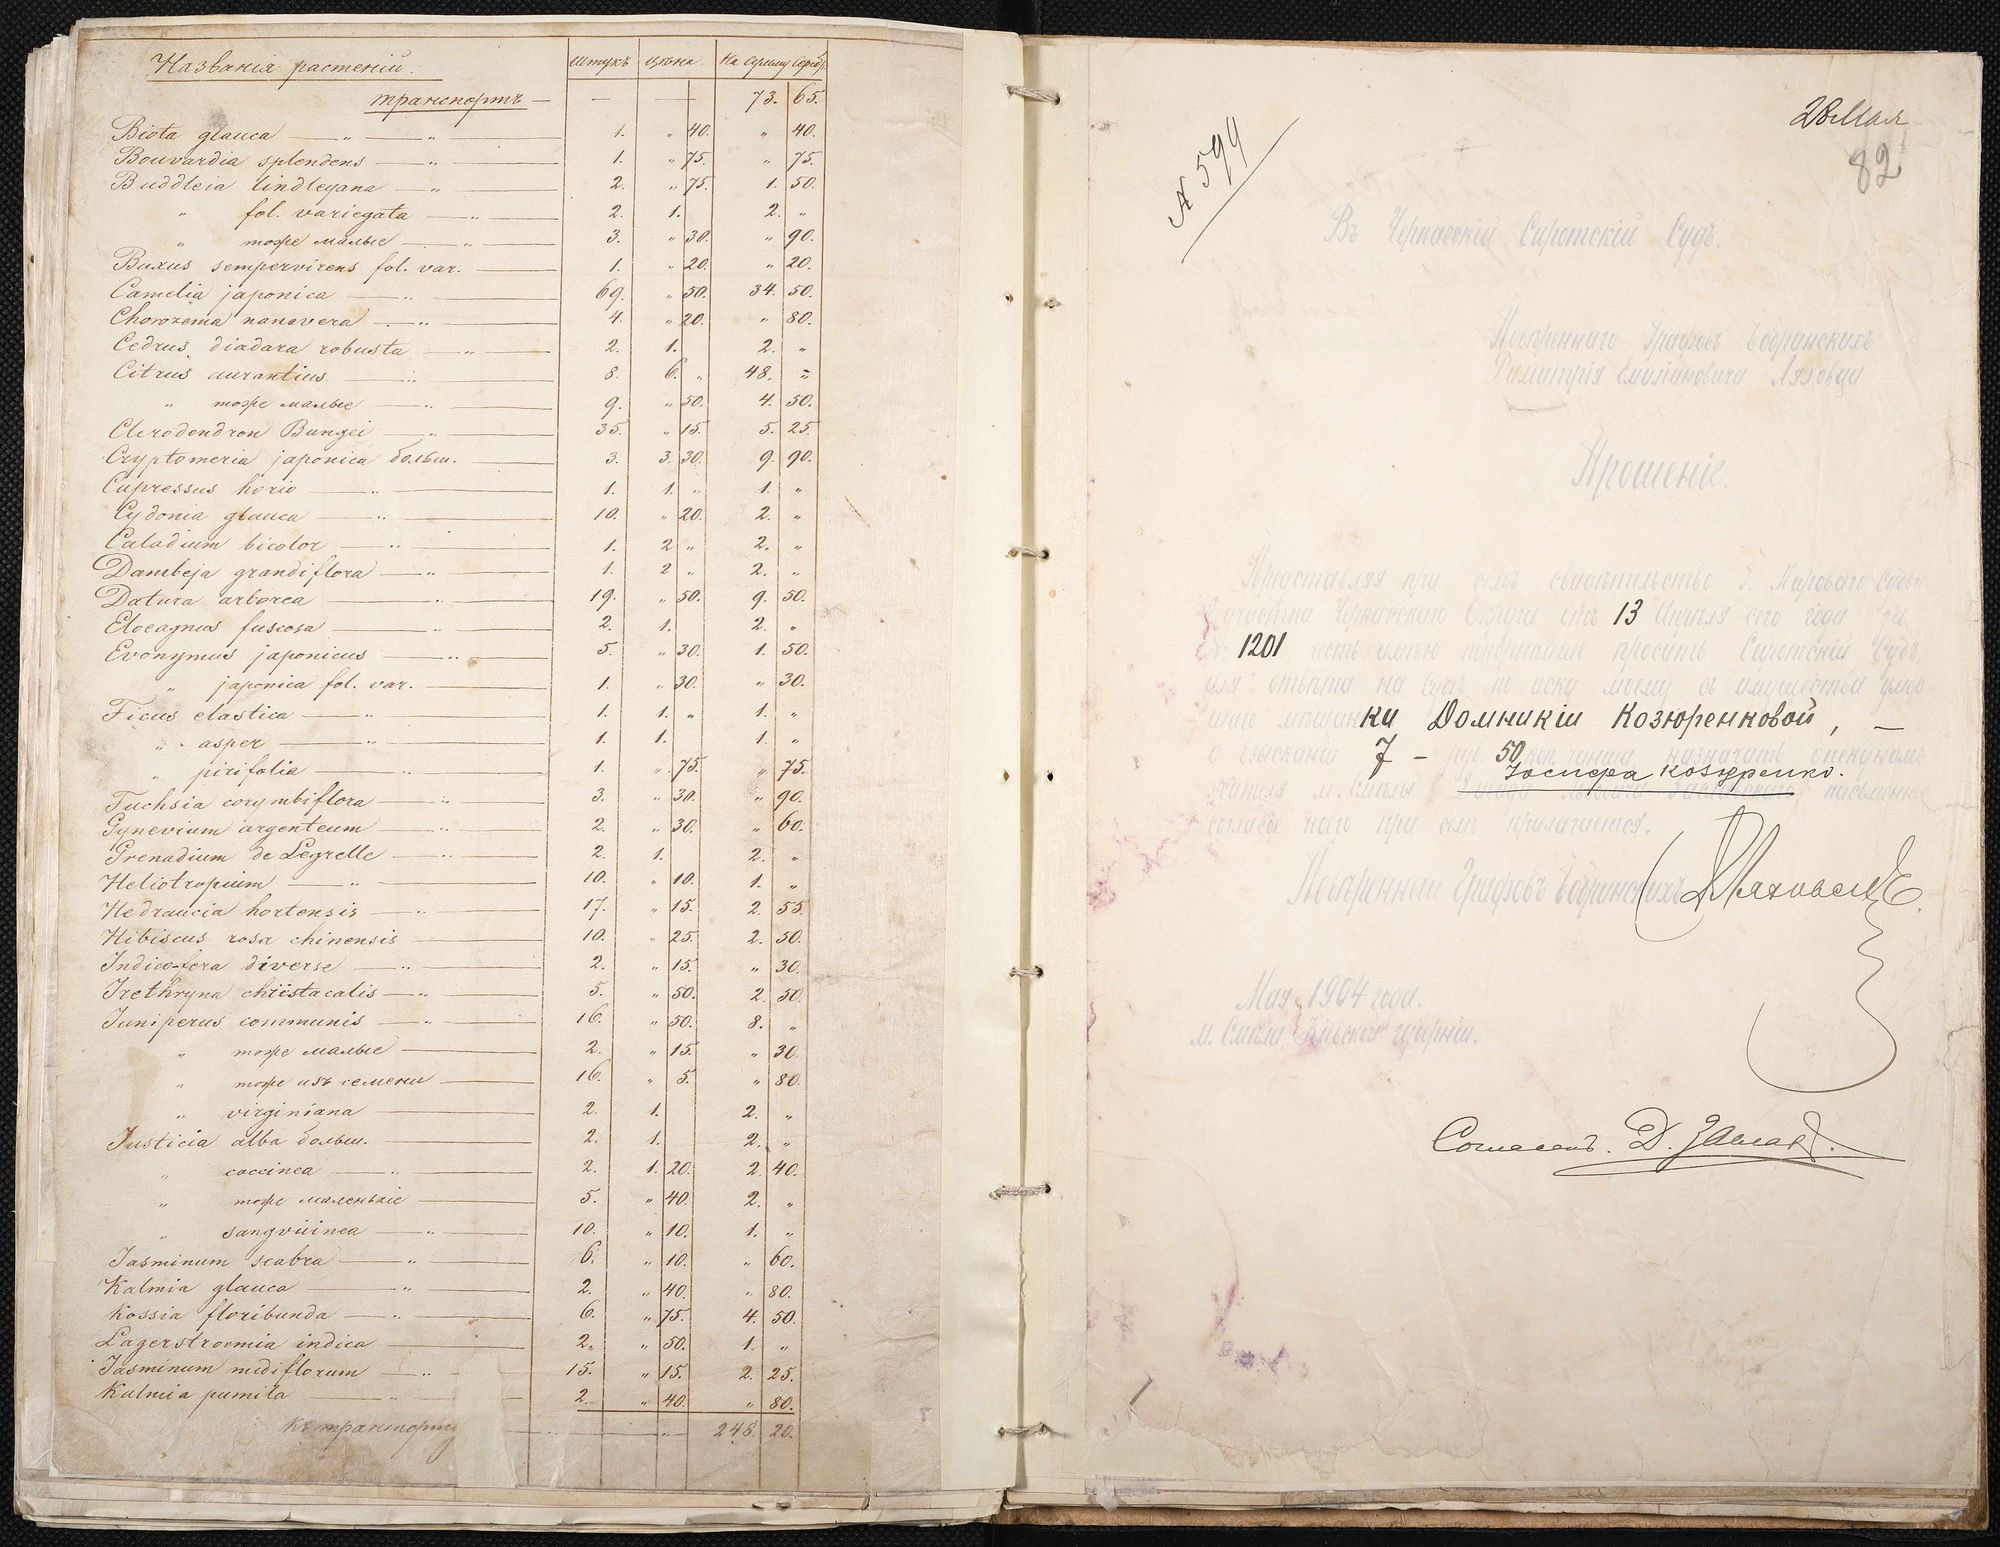 Названія растеній. штукъ цѣна. На сумму серебр.
транспортъ — — — 73. 65.
Biota glauca — „ — „ — 1. „ 40. „ 40.
Bouvardia splendens — „ — 1. „ 75. „ 75.
Buddleia lindleyana — „ — 2. „ 75. 1. 50.
„ fol. variegata — „ — 2. 1. 2. „
„ тоже малые — „ — 3. „ 30. „ 90.
Buxus sempervirens fol. var. — 1. „ 20. „ 20.
Camelia japonica — „ — 69. „ 50. 34. 50.
Chorozema nanavera — „ — 4. „ 20. „ 80.
Cedrus diadara robusta — „ — 2. 1. 2. „
Citrus aurantius — „ — 8. 6. „ 48. „
„ тоже малые — „ — 9. „ 50. 4. 50.
Clerodendron Bungei — „ — 35. „ 15. 5. 25.
Cryptomeria japonica больш. — 3. 3. 30. 9. 90.
Cupressus horio — „ — 1. 1. „ 1. „
Cydonia glauca — „ — 10. „ 20. 2. „
Caladium bicolor — „ — 1. 2 „ 2. „
Dambeja grandiflora — „ — 1. 2 „ 2. „
Datura arborea — „ — 19. „ 50. 9. 50.
Eloeagnus fuscosa — „ — 2. 1. 2. „
Evonymus japonicus — „ — 5. „ 30. 1. 50.
„ japonica fol. var. — 1. „ 30. „ 30.
Ficus elastica — „ — 1. 1. „ 1. „
„ asper — „ — 1. 1. 1. „
„ pirifolia — „ — 1. „ 75. „ 75.
Fuchsia corymbiflora — „ — 3. „ 30. „ 90.
Gynevium argenteum — „ — 2. „ 30. „ 60.
Grenadium de Legrelle — „ — 2. 1. 2. „
Heliotropium — „ — 10. „ 10. 1. „
Hedraucia hortensis — „ — 17. „ 15. 2. 55.
Hibiscus rosa chinensis — 10. „ 25. 2. 50.
Indico-fera diverse — „ — 2. „ 15. „ 30.
Irethryna christacalis — „ — 5. „ 50. 2. 50.
Iuniperus communis — „ — 16. „ 50. 8. „
„ тоже малые — 2. „ 15. „ 30
„ тоже изъ семени — 16. „ 5. „ 80.
„ virginiana — 2. 1. 2. „
Iusticia alba больш. — 2. 1. 2. „
„ coccinea — „ — 2. 1. 20. 2. 40.
„ тоже маленькіе — 5. „ 40. 2. „
„ sangvuinea — „ — 10. „ 10. 1. „
Iasminum scabra — „ — 6. „ 10. „ 60.
Kalmia glauca — „ — 2. „ 40. „ 80.
Kossia floribunda — „ — 6. „ 75. 4. 50.
Lagerstroemia indica — 2. „ 50. 1. „
Iasminum nudiflorum — „ — 15. „ 15. 2. 25.
Kalmia pumila — „ — 2. „ 40. „ 80.
къ транспорту — „ — 248. 20.
28 Мая
82
№ 599
Въ Черкасскій Сиротскій Судъ.
Повѣреннаго Графовъ Бобринскихъ
Димитрія Емиліановича Ляховца
Прошеніе.
Представляя при семъ свидѣтельство Г. Мирового Судьи
участка Черкасскаго Округа отъ 13 Апрѣля сего года за
№ 1201 честь имѣю покорнѣйше просить Сиротскій Судъ,
для отвѣта на судѣ по иску моему съ имущества умер-
шаго мѣщанки Домникіи Козюренковой, —
о взысканіи 7 — руб. 50 коп. чинша назначить опекуномъ
Іосифа Козюренко.
жителя м. Смѣлы Давида Заславскаго, письменное
согласіе коего при семъ прилагается.
Повѣренный Графовъ Бобринскихъ Д Ляховецъ.
Мая 1904 года.
м. Смѣла, Кіевской губерніи.
Согласенъ. Д. Заславск.